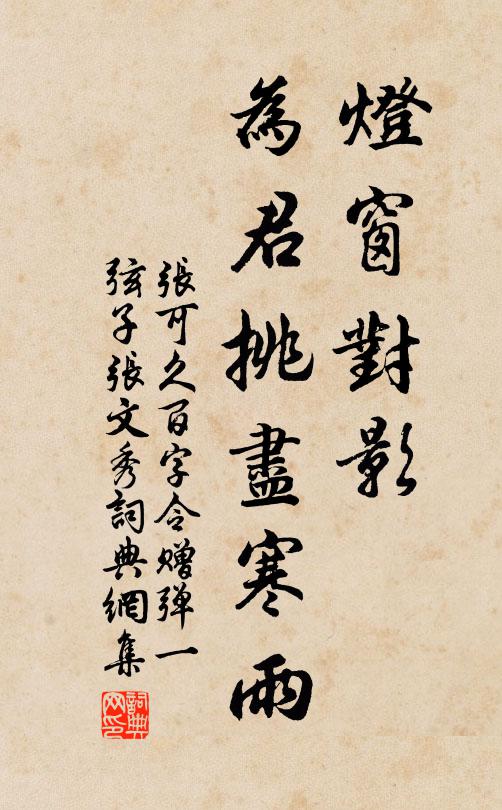 燈窗對影
為君挑盡寒雨
張可久百字令贈弹一
弦子張文秀詞典網集
詞典网印